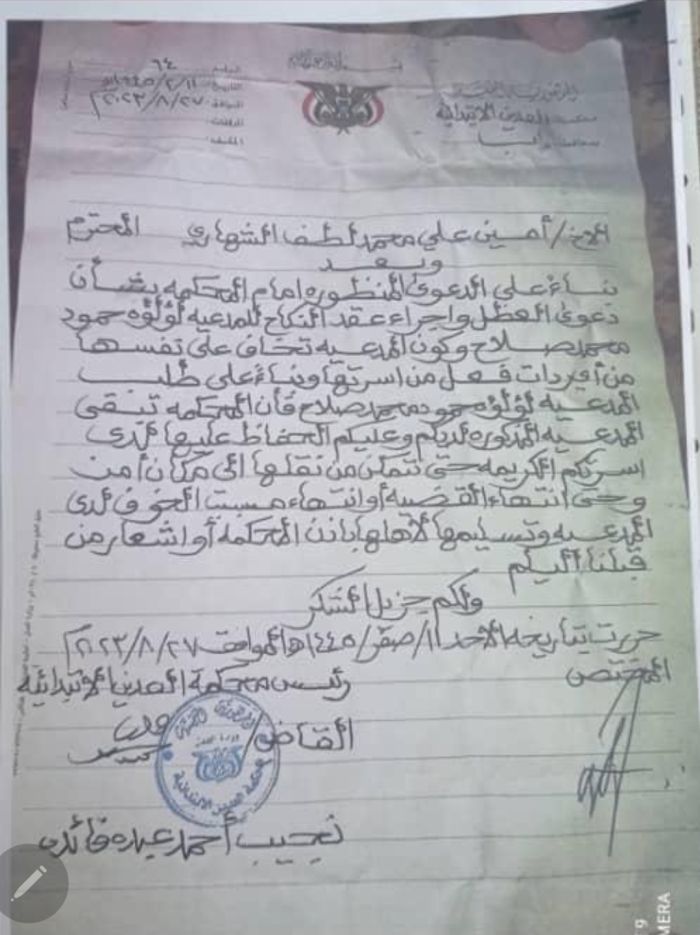 الجمهورية اليمنية
محكمة العدين الابتدائية
محافظة إب
الرقم: ٦٤
التاريخ: ١١/٢/١٤٤٥هـ
الموافق: ٢٧/٨/٢٠٢٣م
المرفقات:
الاخ/أمين علي محمد لطف الشهاري المحترم
وبعد
بناءً على الدعوى المنظوره امام المحكمه بشأن
دعوى العظل واجراء عقد النكاح للمدعيه لؤلؤه حمود
محمد صلاح وكون المدعيه تخاف على نفسها
من أي ردات فعل من اسرتها وبناءً على طلب
المدعيه لؤلؤه حمود محمد صلاح فأن المحكمه تبقى
المدعيه المذكوره لديكم وعليكم الحفاظ عليها لدى
اسرتكم الكريمه حتى تتمكن من نقلها الى مكان أمن
وحتى انتهاء القضيه أو انتهاء مسبب الخوف لدى
المدعيه وتسليمها لأهلها باذن المحكمة أو اشعار من
قبلنا اليكم
ولكم جزيل الشكر
حررت بتاريخه الأحد ١١/صفر/١٤٤٥هـ الموافق ٢٧/٨/٢٠٢٣م
المختص
رئيس محكمة العدين الابتدائية
القاضي/
نجيب أحمد عبده قائد
MERA